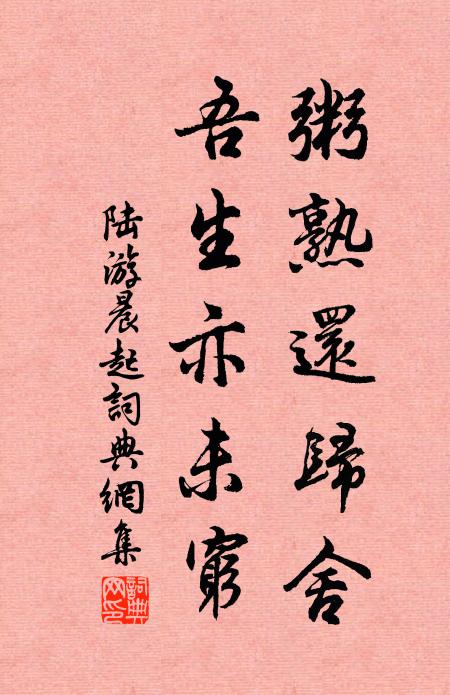 粥熟還歸舍
吾生亦未窮
陆游晨起詞典網集
詞典
网印